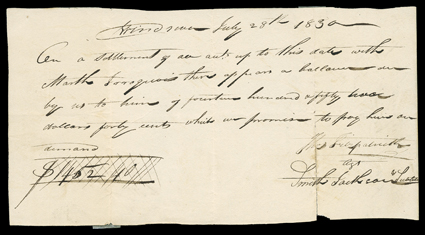 July 28th 1830
On a settlement of our acts up to this date with
there appears a ballance due
by us to him of fourteen hundred & fifty two
dollars forty cents which we promise to pay him on
demand
$1452 40
Fitzpatrick
Smith Jackson &